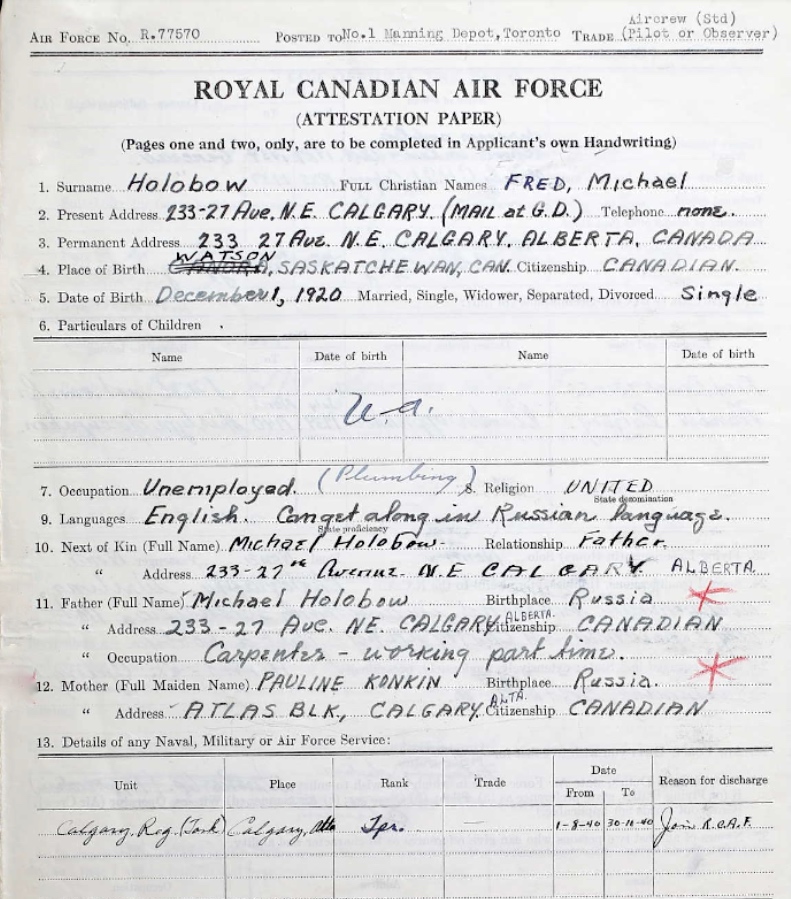 Aircrew (Std)
AIR FORCE NO. R.77570 POSTED TO No.1 Manning Depot, Toronto TRADE (Pilot or Observer)
ROYAL CANADIAN AIR FORCE
(ATTESTATION PAPER)
(Pages one and two, only, are to be completed in Applicant's own Handwriting)
1. Surname Holobow FULL Christian Names FRED, Michael
2. Present Address 233-27 Ave. N.E. CALGARY. (MAIL at G.D.) Telephone none.
3. Permanent Address 233 27 Ave. N.E. CALGARY. ALBERTA, CANADA
WATSON
4. Place of Birth CANORA, SASKATCHEWAN, CAN. Citizenship CANADIAN.
5. Date of Birth December 1, 1920 Married, Single, Widower, Separated, Divorced Single
6. Particulars of Children
Name Date of birth Name Date of birth
n.a.
7. Occupation Unemployed. (Plumbing) 8. Religion UNITED
State denomination
9. Languages English. Can get along in Russian language.
State proficiency
10. Next of Kin (Full Name) Michael Holobow Relationship Father.
" Address 233-27 Avenue. N.E CALGARY ALBERTA
11. Father (Full Name) Michael Holobow Birthplace Russia
" Address 233-27 Ave. NE. CALGARY ALBERTA. Citizenship CANADIAN
" Occupation Carpenter - working part time.
12. Mother (Full Maiden Name) PAULINE KONKIN Birthplace Russia.
" Address ATLAS BLK., CALGARY ALTA. Citizenship CANADIAN
13. Details of any Naval, Military or Air Force Service:
Unit Place Rank Trade Date Reason for discharge
From To
Calgary. Reg. (Tank) Calgary, Alta Tpr. — 1-8-40 30-11-40 Join R.C.A.F.